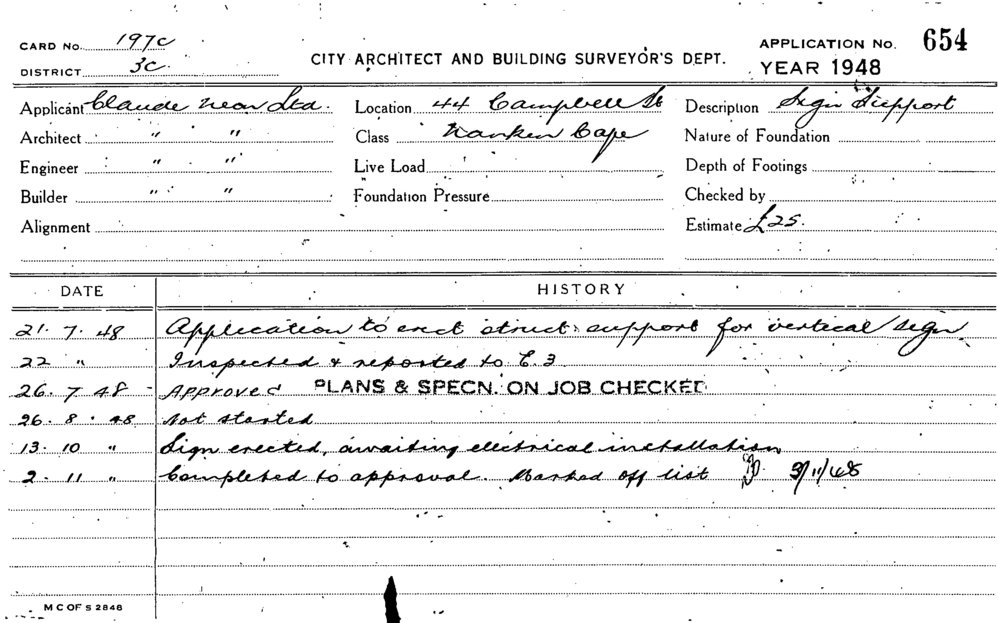 CARD No. 197C
CITY ARCHITECT AND BUILDING SURVEYOR'S DEPT.
APPLICATION No. 654
DISTRICT 3C.
YEAR 1948
Applicant Claude Neon Ltd. Location 44 Campbell St Description Sign Support
Architect " " Class Nanken Cafe Nature of Foundation
Engineer " " Live Load Depth of Footings
Builder " " Foundation Pressure Checked by
Alignment Estimate £25.
DATE HISTORY
21. 7. 48 Application to erect struct. support for vertical sign
22 " Inspected & reported to E.3
26. 7. 48 - Approved PLANS & SPECN. ON JOB CHECKED
26. 8. 48 Not started
13. 10 " Sign erected, awaiting electrical installation
2. 11 " Completed to approval. Marked off list 3/11/48
M C OF S 2848